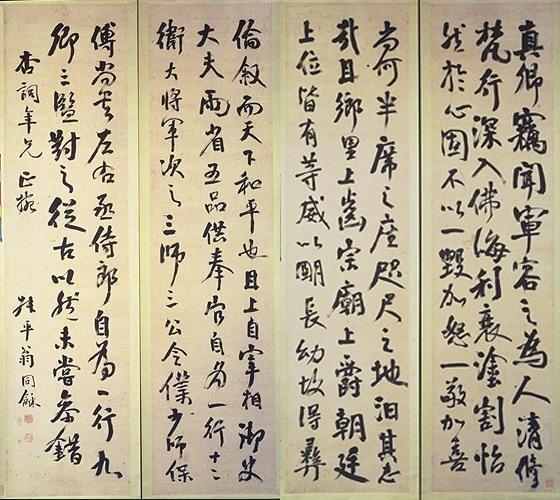 真卿竊聞軍容之為人清修
梵行深入佛海利衰塗割恬
然於心固不以一毀加怒一敬加喜
尚何半席之座咫尺之地汩其志
哉且鄉里上齒宗廟上爵朝廷
上位皆有等威以朙長幼故得彝
倫敘而天下和平也且上自宰相御史
大夫兩省五品供奉官自為一行十二
衛大將軍次之三師三公令僕少師保
傅尚書左右丞侍郎自為一行九
卿三監對之從古以然未嘗參錯
杏詞年兄正
叔平翁同龢